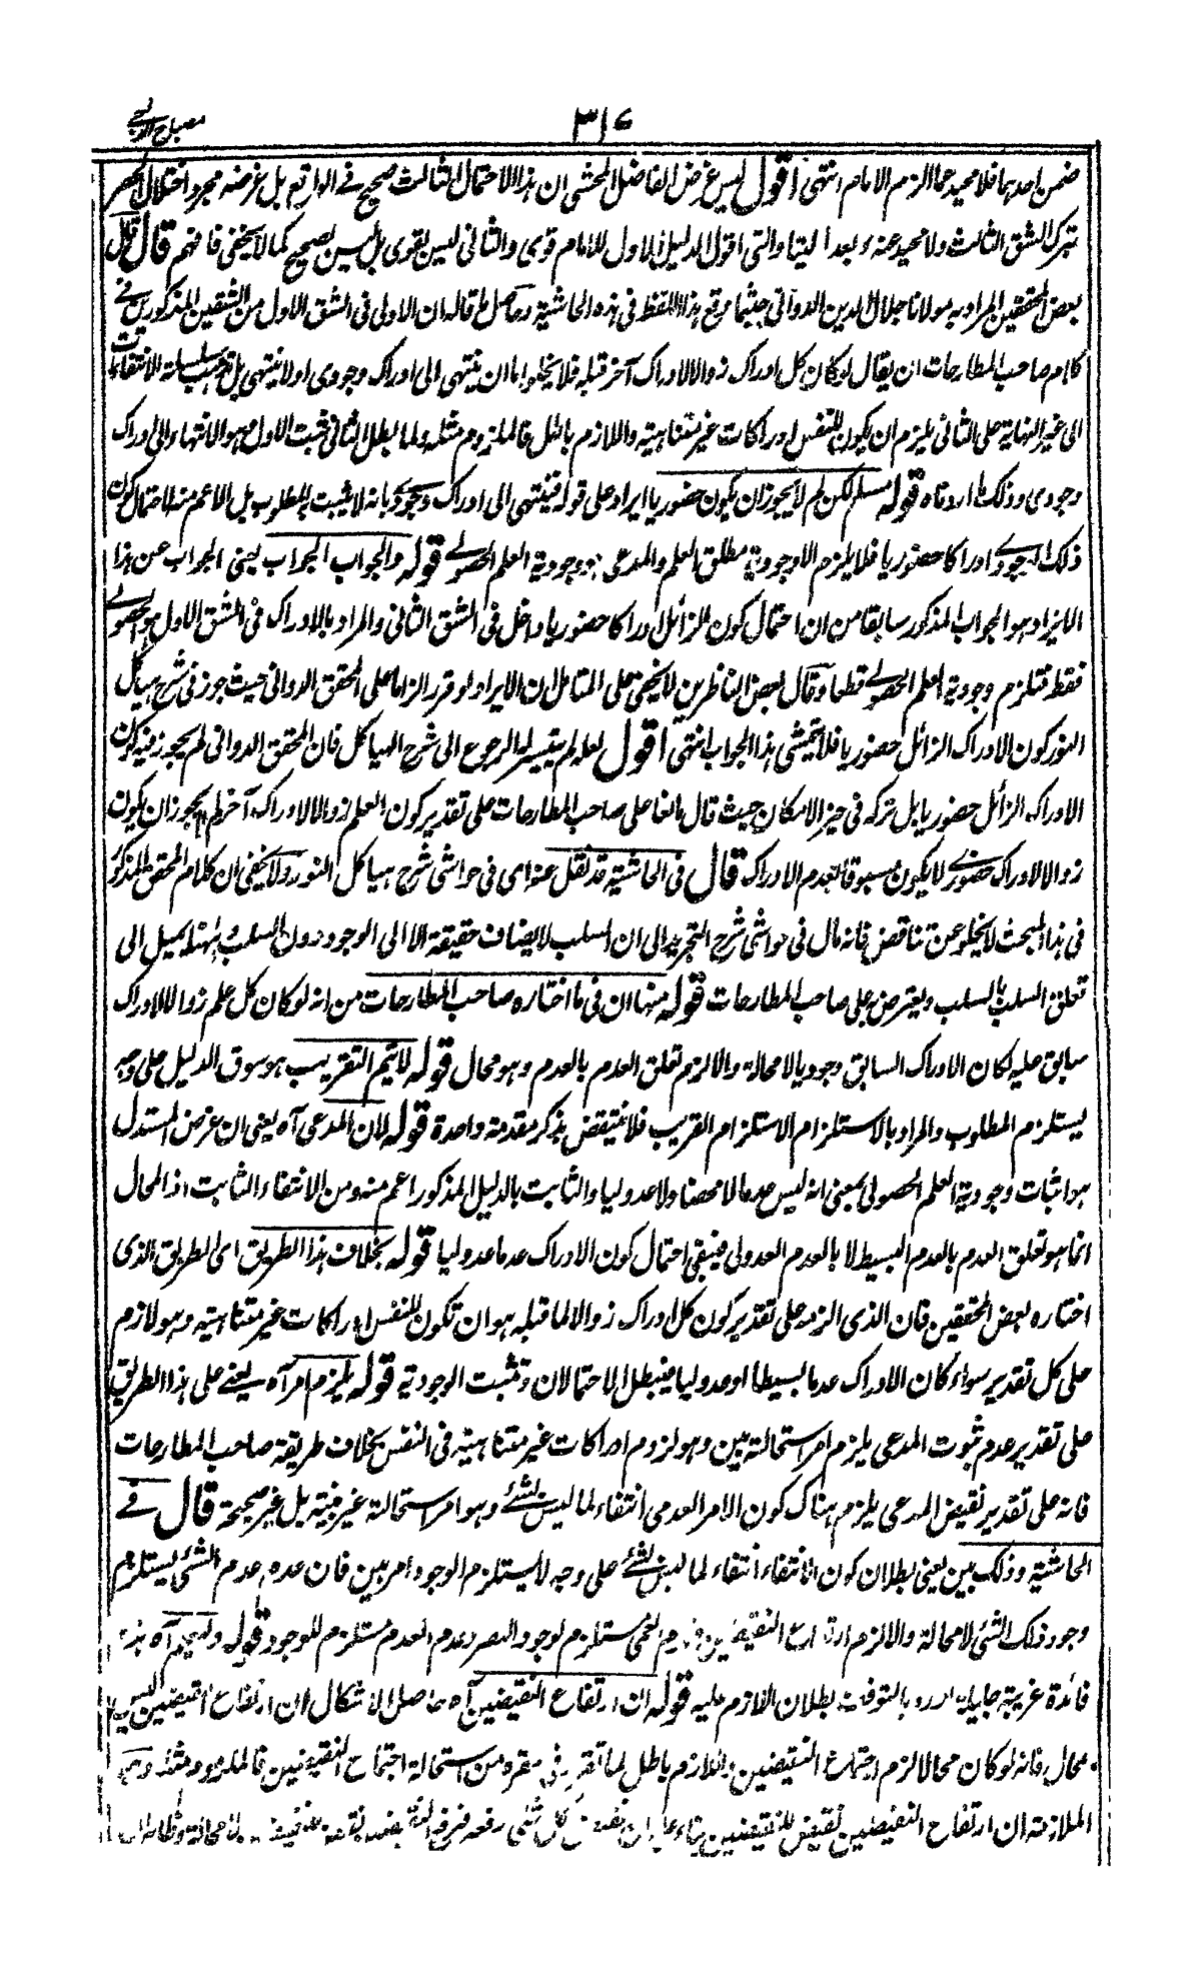 ٣١٧
مصباح الدجى
ضمن احدهما فلا محيد عما الزم الامام انتهى اقول ليس غرض الفاضل المحشى ان هذا الاحتمال الثالث صحيح فى الواقع بل غرضه مجرد اختلال الحصر
بترك الشق الثالث ولا محيد عنه بعد اللتيا والتى اقول الدليل الاول للامام قوى والثانى ليس بقوى بل ليس بصحيح كما لا يخفى فافهم قال قال
بعض المحققين المراد به مولانا جلال الدين الدوانى حيثما وقع هذا اللفظ فى هذه الحاشية وحاصل ما قاله ان الاولى فى الشق الاول من الشقين المذكورين فى
كلام صاحب المطارحات ان يقال لو كان كل ادراك زوالا لادراك آخر قبله فلا يخلو اما ان ينتهى الى ادراك وجودى اولا ينتهى بل تذهب سلسلة الانتفاءات
الى غير النهاية على الثانى يلزم ان يكون للنفس ادراكات غير متناهية واللازم باطل فالملزوم مثله ولما بطل الثانى ثبت الاول وهو الانتهاء الى ادراك
وجودى وذلك ما اردناه قوله مسلم لكن لم لا يجوز ان يكون حضوريا ايراد على قوله فينتهى الى ادراك وجودى بانه لا يثبت به المطلوب بل الاعم منه لاحتمال كون
ذلك الوجودى ادراكا حضوريا فلا يلزم الا وجودية مطلق العلم والمدعى هو وجودية العلم الحصولى قوله والجواب الجواب يعنى الجواب عن هذا
الايراد هو الجواب المذكور سابقا من ان احتمال كون الزائل ادراكا حضوريا داخل فى الشق الثانى والمراد بالادراك فى الشق الاول هو الحصولى
فقط فتلزم وجودية العلم الحصولى قطعا وقال بعض الناظرين لا يخفى على المتامل ان الايراد لو قرر الزاما على المحقق الدوانى حيث جوز فى شرح هياكل
النور كون الادراك الزائل حضوريا فلا يتمشى هذا الجواب انتهى اقول لعله لم يتيسر له الرجوع الى شرح الهياكل فان المحقق الدوانى لم يجوز فيه كون
الادراك الزائل حضوريا بل تركه فى حيز الامكان حيث قال مانعا على صاحب المطارحات على تقدير كون العلم زوالا لادراك آخر لم لا يجوز ان يكون
زوالا لادراك حضورى لا يكون مسبوقا بعدم الادراك قال فى الحاشية قد نقل عنه اى فى حواشى شرح هياكل النور ولا يخفى ان كلام المحقق المذكور
فى هذا المبحث لا يخلو عن تناقض فانه مال فى حواشى شرح التجريد الى ان السلب لا يضاف حقيقة الا الى الوجود دون السلب وههنا يميل الى
تعلق السلب بالسلب ويعترض على صاحب المطارحات قوله منها ان فى ما اختاره صاحب المطارحات من انه لو كان كل علم زوالا لادراك
سابق عليه لكان الادراك السابق وجوديا لا محالة والا لزم تعلق العدم بالعدم وهو محال قوله لا يتم التقريب هو سوق الدليل على وجه
يستلزم المطلوب والمراد بالاستلزام الاستلزام القريب فلا ينتقض بذكر مقدمة واحدة قوله لان المدعى آه يعنى ان غرض المستدل
هو اثبات وجودية العلم الحصولى بمعنى انه ليس عدما لا محضا ولا عدوليا والثابت بالدليل المذكور اعم منه ومن الانتفاء الثابت اذ المحال
انما هو تعلق العدم بالعدم البسيط لا بالعدم العدولى فيبقى احتمال كون الادراك عدما عدوليا قوله بخلاف هذا الطريق اى الطريق الذى
اختاره بعض المحققين فان الذى الزمه على تقدير كون كل ادراك زوالا لما قبله هو ان تكون للنفس ادراكات غير متناهية وهو لازم
على كل تقدير سواء كان الادراك عدما بسيطا او عدوليا فيبطل الاحتمالان وتثبت الوجودية قوله يلزم امر آه يعنى على هذا الطريق
على تقدير عدم ثبوت المدعى يلزم امر استحالته بين وهو لزوم ادراكات غير متناهية فى النفس بخلاف طريقة صاحب المطارحات
فانه على تقدير نقيض المدعى يلزم هناك كون الامر العدمى انتفاء لما ليس بشئ وهو امر استحالته غير بينة بل غير صحيحة قال فى
الحاشية وذلك بين يعنى بطلان كون الانتفاء انتفاء لما ليس بشئ على وجه لا يستلزم الوجود امر بين فان عدم عدم الشئ يستلزم
وجود ذلك الشئ لا محالة والا لزم ارتفاع النقيضين فعدم العمى مستلزم لوجود البصر وعدم العدم مستلزم للوجود قوله وليعلم آه هذه
فائدة غريبة اوردها لتوقف بطلان اللازم عليه قوله ان ارتفاع النقيضين آه حاصل الاشكال ان ارتفاع النقيضين ليس
بمحال فانه لو كان محالا لزم اجتماع النقيضين واللازم باطل لما تقرر فى مقره من استحالة اجتماع النقيضين فالملزوم مثله وجه
الملازمة ان ارتفاع النقيضين نقيض للنقيضين بناء على ان نقيض كل شئ رفعه فرفع النقيضين